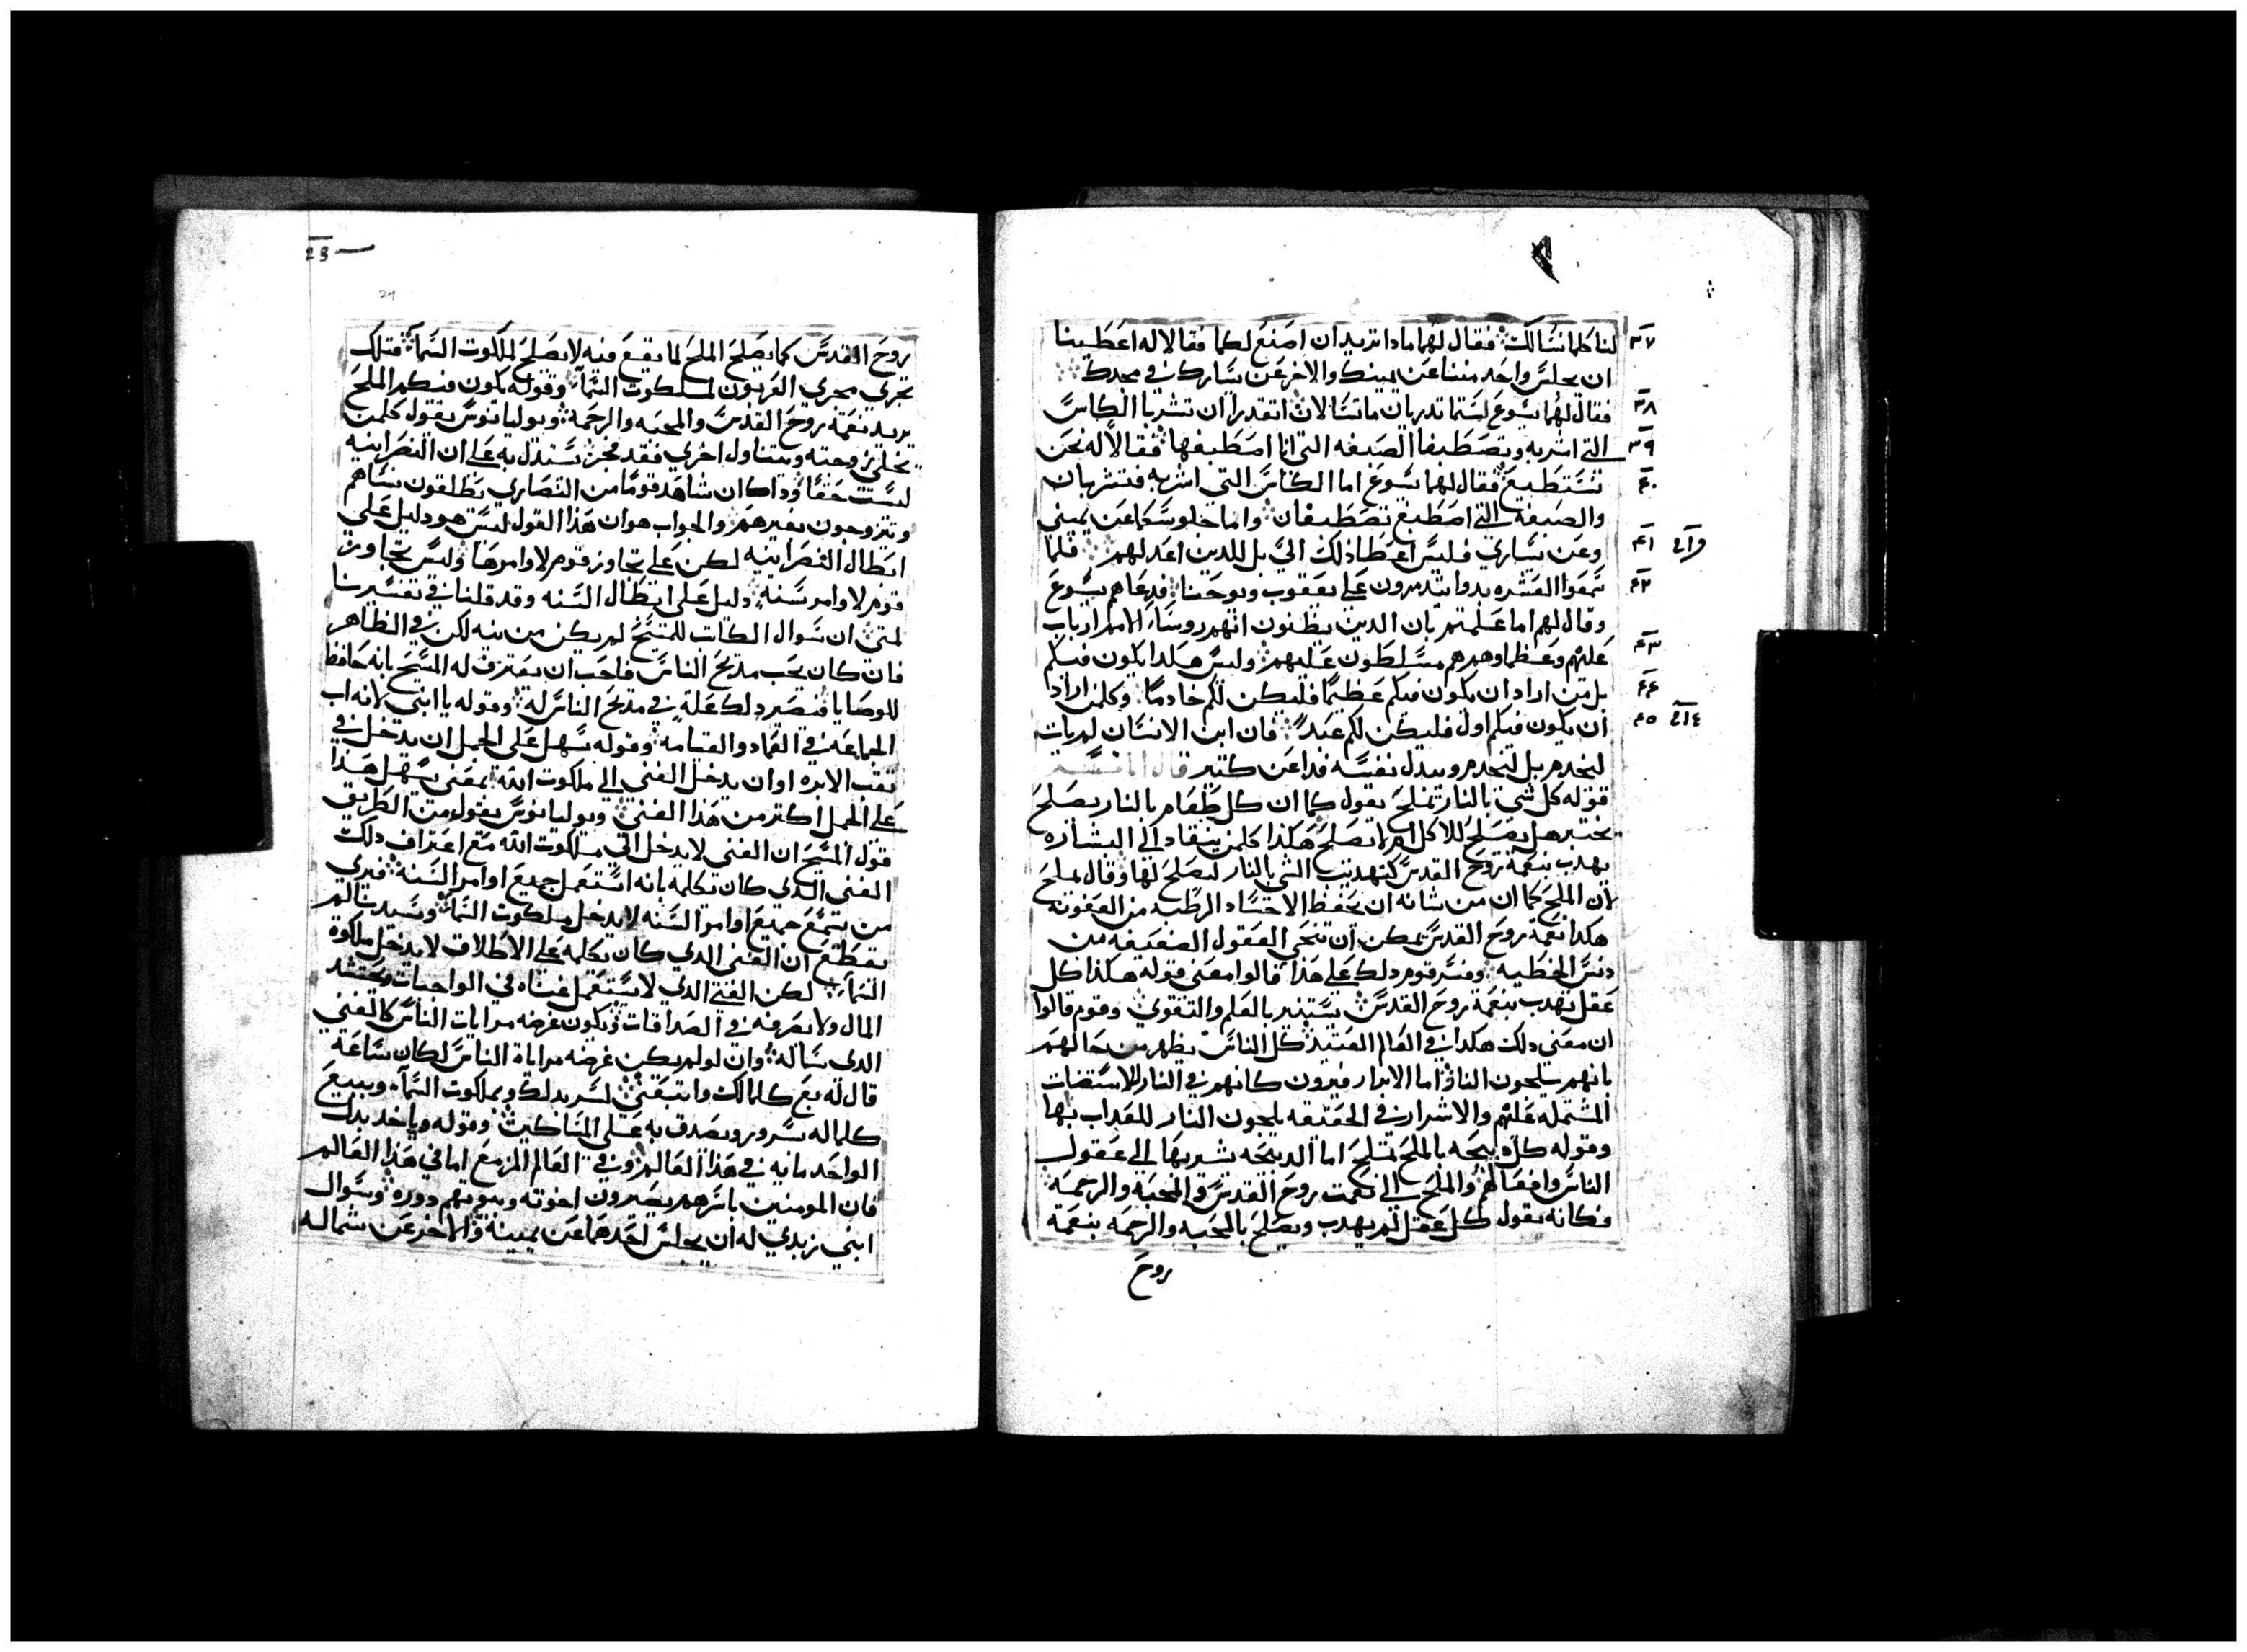 لنا كلما نسالك فقال لهما مادا تريدان اصنع لكما فقالا له اعطينا
ان يجلس واحد مننا عن يمينك والاخر عن يسارك في مجدك
فقال لهما يسوع لستما تدريان ما تسالان اتقدران ان تشربا الكاس
التي اشربه وتصطبغا الصبغه التي انا اصطبغها فقالا له نحن
نستطيع فقال لهما يسوع اما الكاس التي اشربه فتشربان
والصبغه التي اصطبغ تصطبغان واما جلوسكما عن يميني
وعن يساري فليس اعطا ذلك الي بل للدين اعد لهم فلما
سمعوا العشره بدوا يتدمرون علي يعقوب ويوحنا فدعاهم يسوع
وقال لهم اما علمتم بان الدين يظنون انهم روسا الامم ارباب
عليهم وعظماوهم هم مسلطون عليهم وليس هكدا يكون فيكم
بل من اراد ان يكون فيكم عظيما فليكن لكم خادما وكلمن اراد
ان يكون فيكم اول فليكن لكم عبد فان ابن الانسان لم يات
ليخدم بل ليخدم ويبدل نفسه فدا عن كتير قال المفسر
قوله كل شي بالنار تملح يقول كما ان كل طعام بالنار يصلح
يختبر هل يصلح للاكل ام لا يصلح هكذا كلمن ينقاد الي البشاره
يهدب بنعمة روح القدس كتهديب الشي بالنار ليصلح لها وقال يملح
لان الملح كما ان من شانه ان يحفظ الاجساد الرطبه من العفونه
هكدا نعمة روح القدس يمكن ان تنجي العقول الضعيفه من
دنس الخطيه وفسر قوم دلك علي هذا قالوا معني قوله هكذا كل
عقل يهدب بنعمة روح القدس يستنير بالعلم والتقوي وقوم قالوا
ان معني دلك هكدا في العالم العتيد كل الناس يظهر من حالهم
بانهم يلحون النار اما الابرار فيرون كانهم في النار للاستضات
المشتمله عليهم والاشرار في الحقيقه يلجون النار للعداب بها
وقوله كل دبيحه بالملح تملح اما الدبيحه يشير بها الي عقول
الناس وافعالهم والملح الي نعمت روح القدس والمحبه والرحمه
فكانه يقول كل عقل لم يهدب ويصلح بالمحبه والرحمه بنعمة
روح
٣٧
٣٨
٣٩
٤٠
٤١
٤٢
٤٣
٤٤
٤٥
23
24
روح القدس كما يصلح الملح لما يقع فيه لا يصلح لملكوت السما فتلك
تجري مجري العربون لملكوت السما وقوله يكون فيكم الملح
يريد نعمة روح القدس والمحبه والرحمه ويوليانوس يقول كلمن
يخلي زوجته ويتناول اخري فقد فجر يستدل به علي ان النصرانيه
ليست حقا وداك ان شاهد قوما من النصاري يطلقون نساهم
ويتزوجون بغيرهم والجواب هو ان هذا القول ليس هو دليل علي
ابطال النصرانيه لكن علي تجاوز قوم لاوامرها وليس تجاوز
قوم لاوامر سنه دليل علي ابطال السنه وقد قلنا في تفسيرنا
لمتي ان سوال الكاتب للمسيح لم يكن من نيه لكن في الظاهر
فان كان يحب مديح الناس فاحب ان يعترف له المسيح بانه حافظ
للوصايا فيصير دلك عله في مديح الناس له وقوله يا ابني لانه اب
الجماعه في العماد والقيامه وقوله سهل علي الجمل ان يدخل في
تقب الابره او ان يدخل الغني الي ملكوت الله بمعني يسهل هدا
علي الجمل اكتر من هذا الغني ويوليانوس يقول من الطريق
قول المسيح ان الغني لا يدخل الي ملكوت الله مع اعتراف دلك
الغني الدي كان يكلمه بانه استعمل جميع اوامر السنه فيري
من يتمم جميع اوامر السنه لا يدخل ملكوت السما وسيدنا لم
يقطع ان الغني الدي كان يكلمه علي الاطلاق لا يدخل ملكوة
السما لكن الغني الدي لا يستعمل غناه في الواجبات ويحتشد
المال ولا يصرفه في الصداقات ويكون غرضه مرايات الناس كالغني
الدي ساله وان لو لم يكن غرضه مراياة الناس لكان ساعة
قال له بع كلما لك واتبعني لسر بدلك وبملكوت السما ويبيع
كلما له بسرور ويصدق به علي المساكين وقوله وياخد بدل
الواحد مايه في هذا العالم وفي العالم المزمع اما في هذا العالم
فان المومنين باسرهم يصيرون اخوته وبيوتهم دوره وسوال
ابني زبدي له ان يجلس احدهما عن يمينه والاخر عن شماله